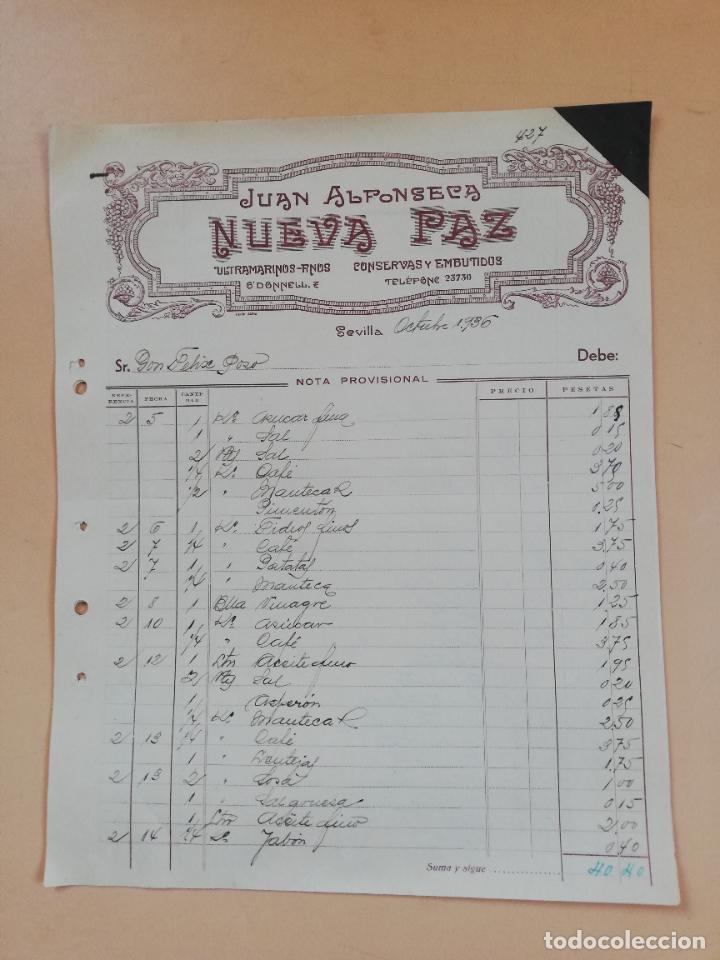 427
JUAN ALFONSECA
NUEVA PAZ
ULTRAMARINOS-FINOS CONSERVAS Y EMBUTIDOS
O'DONNELL, 2 TELÉFONO 23730
Sevilla Octubre 1936
Sr. Don Felix Poso Debe:
NOTA PROVISIONAL
REFERENCIA FECHA CANTIDAD PRECIO PESETAS
2 5 1 Ko Azucar fina 1 85
1 " Sal 0 15
2 Pqs Sal 0 20
1/4 Ko Café 3 70
1/2 " Manteca R 5 00
Pimentón 1 25
2 6 1 Ko Fideos finos 1 75
2 7 1/4 " Café 3 75
2 7 1 " Patatas 0 40
1/4 " Manteca 2 50
2 8 1 Blla Vinagre 1 25
2 10 1 Ko Azúcar 1 85
1/4 " Café 3 75
2 12 1 Ltro Aceite fino 1 95
2 Pqs Sal 0 20
1 Asperón 0 25
1/4 Ko Manteca R 2 50
2 13 1/4 " Café 3 75
1 " Lentejas 1 75
2 13 2 " Sosa 1 00
1 " Sal gruesa 0 15
1 Ltro Aceite fino 2 00
2 14 1/4 Ko Jabón 0 40
Suma y sigue 40 40
todocoleccion
todocoleccion.net